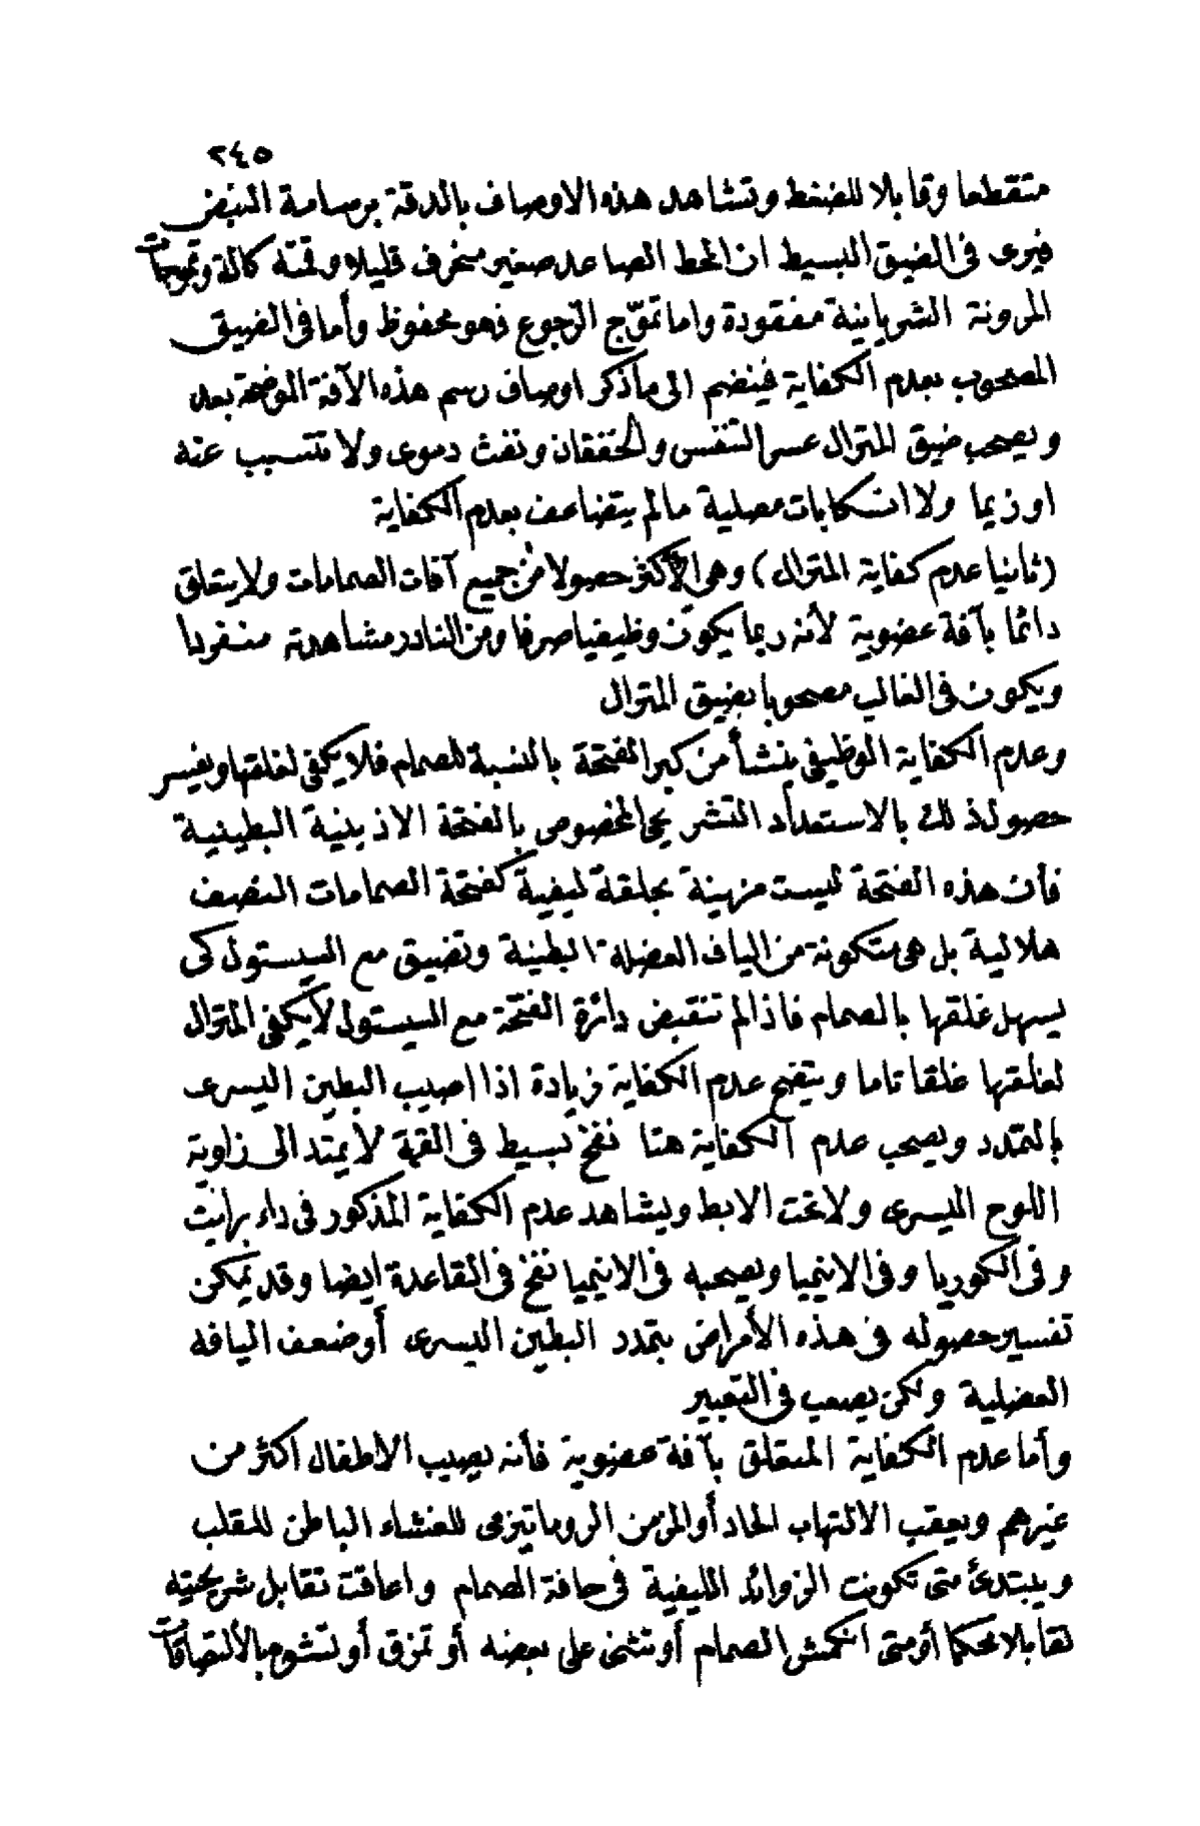 ٢٤٥
متقطعا وقابلا للضغط وتشاهد هذه الاوصاف بالدقة برسامة النبض
فيرى فى الضيق البسيط ان الخط الصاعد صغير منحرف قليلا وقمته كالة وتموجات
المرونة الشريانية مفقودة واما تموّج الرجوع فهو محفوظ وأما فى الضيق
المصحوب بعدم الكفاية فينضم الى ما ذكر اوصاف رسم هذه الآفة الموضحة بعد
ويصحب ضيق المترال عسر التنفس والخفقان ونفث دموى ولا تتسبب عنه
اوزيما ولا انسكابات مصلية مالم يتضاعف بعدم الكفاية
(ثانيا عدم كفاية المترال) وهى الأكثر حصولا من جميع آفات الصمامات ولا يتعلق
دائما بآفة عضوية لأنه ربما يكون وظيفيا صرفا ومن النادر مشاهدته منفردا
ويكون فى الغالب مصحوبا بضيق المترال
وعدم الكفاية الوظيفى ينشأ من كبر الفتحة بالنسبة للصمام فلا يكفى لغلقها ويفسر
حصول ذلك بالاستعداد التشريحى المخصوص بالفتحة الاذينية البطينية
فأن هذه الفتحة ليست مزينة بحلقة ليفية كفتحة الصمامات النصف
هلالية بل هى متكونة من الياف العضلة البطينية وتضيق مع السيستول كى
يسهل غلقها بالصمام فاذا لم تنقبض دائرة الفتحة مع السيستول لا يكفى المترال
لغلقها غلقا تاما ويتضح عدم الكفاية زيادة اذا اصيب البطين اليسرى
بالتمدد ويصحب عدم الكفاية هنا نفخ بسيط فى القمة لا يمتد الى زاوية
اللوح اليسرى ولا تحت الابط ويشاهد عدم الكفاية المذكور فى داء برايت
وفى الكوريا وفى الانيميا ويصحبه فى الانيميا نفخ فى القاعدة ايضا وقد يمكن
تفسير حصوله فى هذه الأمراض بتمدد البطين اليسرى أو ضعف اليافه
العضلية ولكن يصعب فى التعبير
وأما عدم الكفاية المتعلق بآفة عضوية فأنه يصيب الاطفال اكثر من
غيرهم ويعقب الالتهاب الحاد أو المزمن الروماتيزمى للغشاء الباطن للقلب
ويبتدئ متى تكونت الزوائد الليفية فى حافة الصمام واعاقت تقابل شريحتيه
تقابلا محكما أو متى انكمش الصمام أو تثنى على بعضه أو تمزق أو تشوه بالالتصاقات